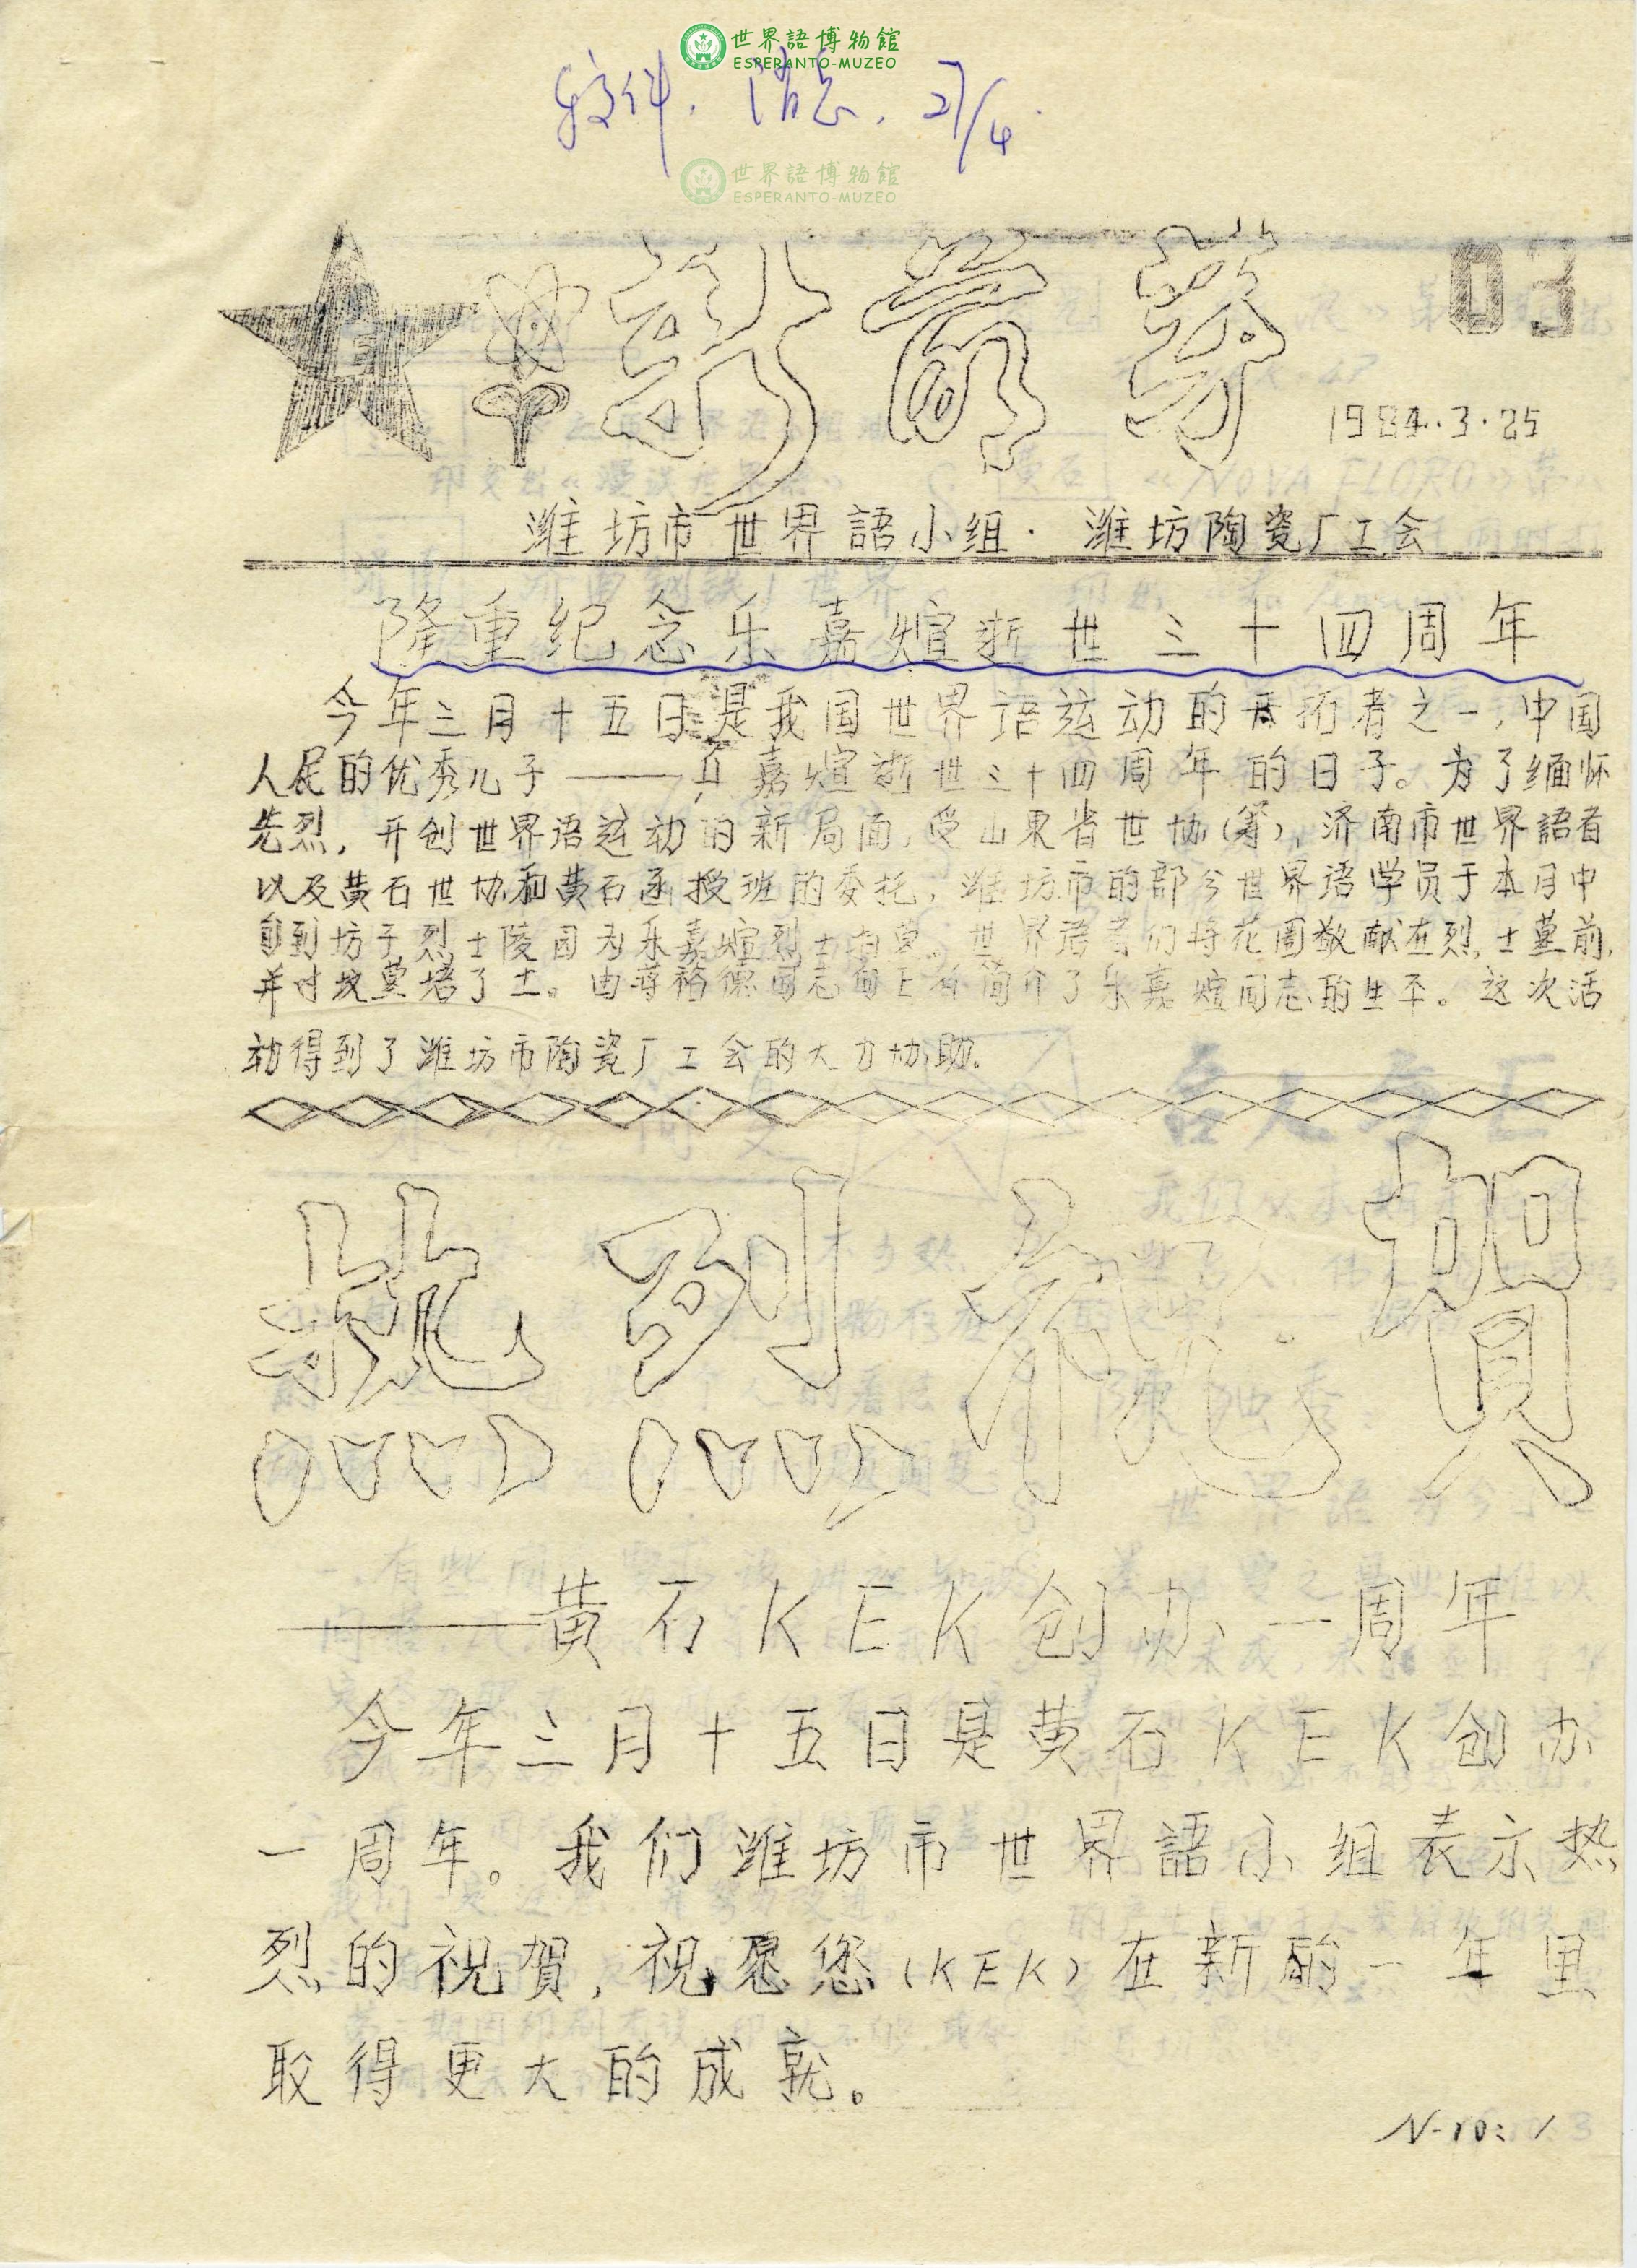 世界語博物館
ESPERANTO-MUZEO
软件. 消息. 27/4.
世界語博物館
ESPERANTO-MUZEO
E
新萌芽
03
1984.3.25
潍坊市世界語小组·潍坊陶瓷厂工会
隆重纪念乐嘉煊逝世三十四周年
今年三月十五日是我国世界语运动的开拓者之一,中国
人民的优秀儿子——乐嘉煊逝世三十四周年的日子。为了缅怀
先烈,开创世界语运动的新局面,受山东省世协(筹),济南市世界語者
以及黄石世协和黄石函授班的委托,潍坊市的部分世界语学员于本月中
旬到坊子烈士陵园为乐嘉煊烈士扫墓。世界语者们将花圈敬献在烈士墓前,
并对坟墓培了土。由蒋裕德同志向上者简介了乐嘉煊同志的生平。这次活
动得到了潍坊市陶瓷厂工会的大力协助。
热烈祝賀
——黄石KEK创办一周年
今年三月十五日是黄石KEK创办
一周年。我们潍坊市世界語小组表示热
烈的祝賀,祝愿您(KEK)在新的一年里
取得更大的成就。
N-ro: 1